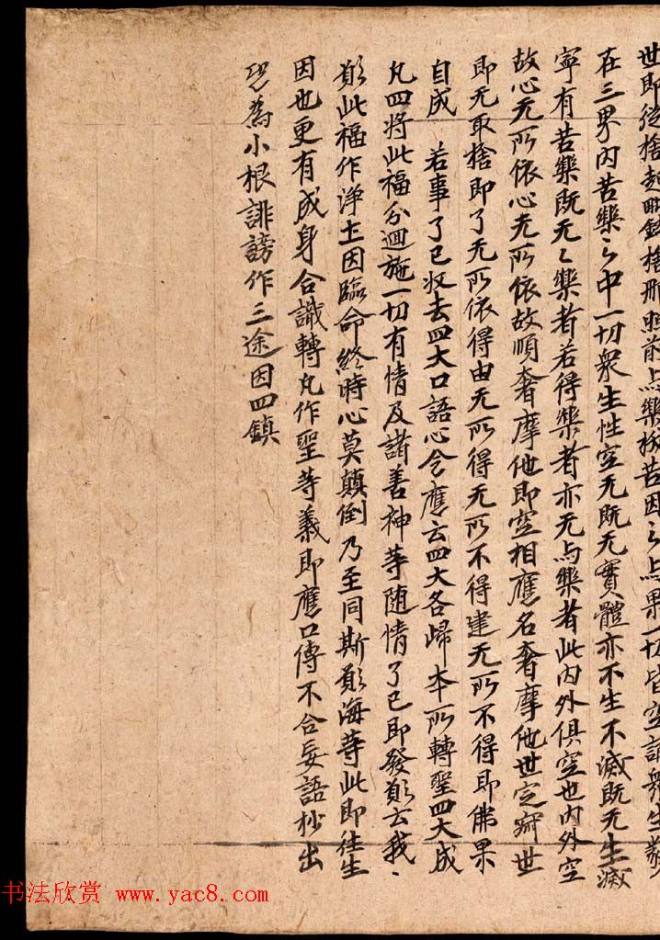 世即從捨起 捨 照前 樂 苦因〻 果一切皆空諸衆生
在三界内苦樂之中一切衆生性空无既无實體亦不生不滅既无生滅
寧有苦樂既无〻樂者若得樂者亦无与樂者此内外俱空也内外空
故心无所依心无所依故順奢摩他即空相應名奢摩他世定 世
即无取捨即了无所依得由无所得无所不得建无所不得即佛果
自成 若事了已收去四大口語心念應云四大各歸本所轉聖四大成
凡四將此福分迴施一切有情及諸善神等随情了已即發願云我〻
願此福作浄土因臨命終時心莫顛倒乃至同斯願海等此即往生
因也更有成身合識轉凡作聖等義即應口傳不合妄語抄出
恐為小根誹謗作三途因四鎮
书法欣赏 www.yac8.com